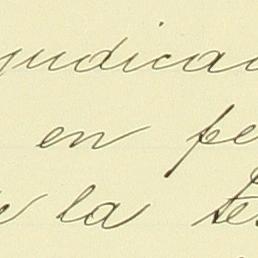 judicad
en pe
e la te